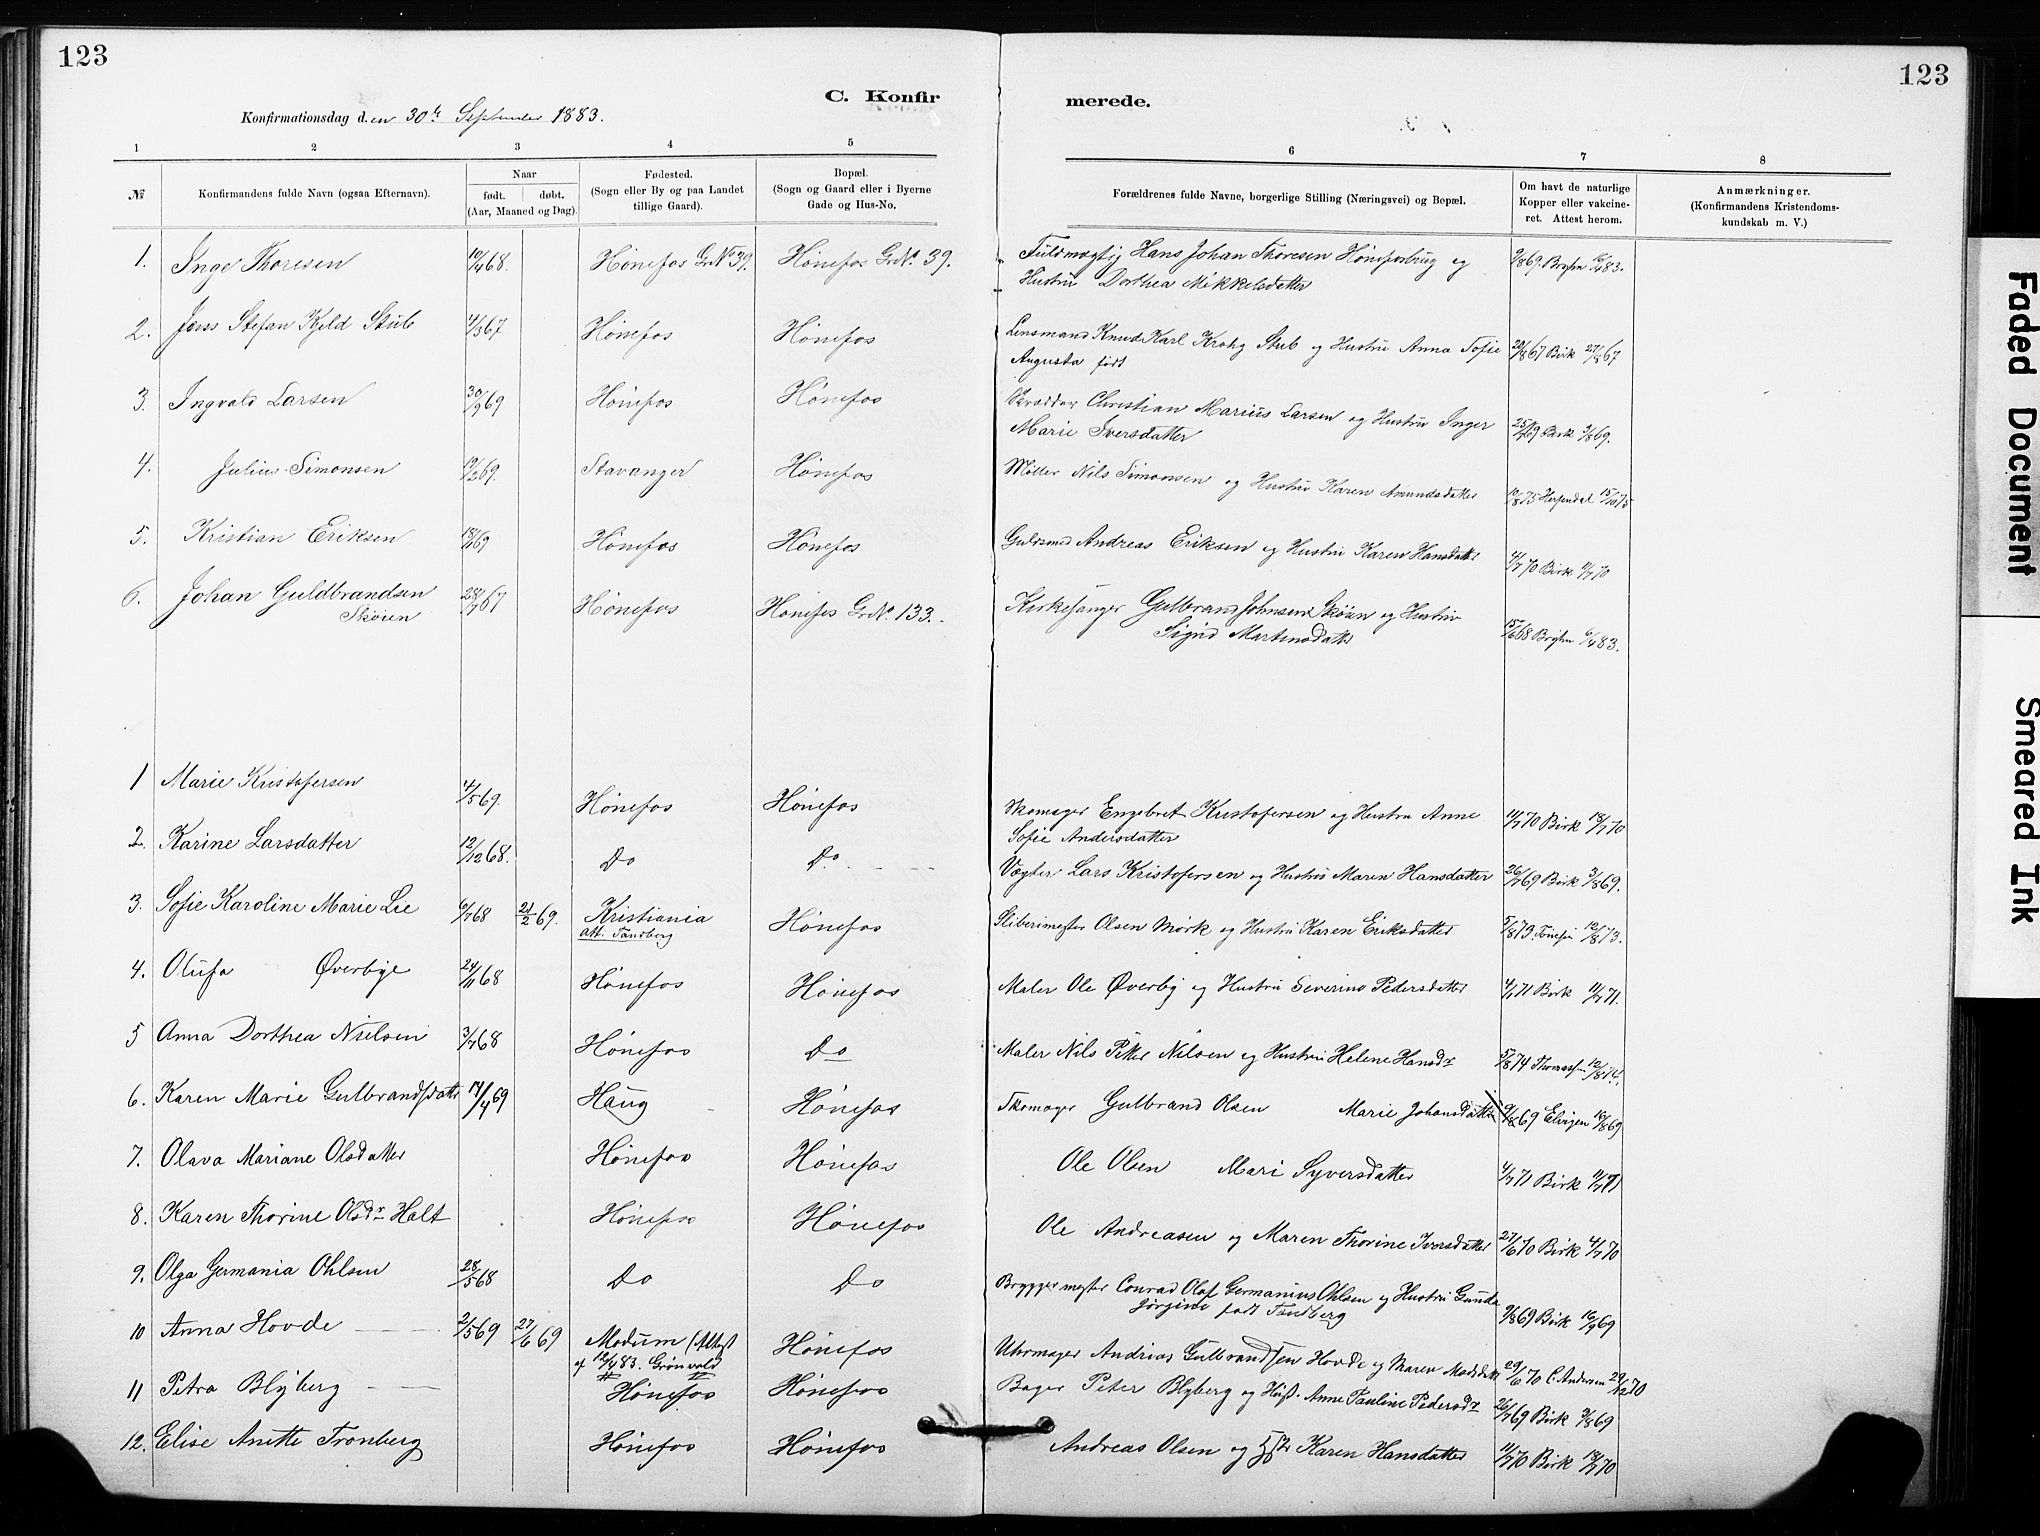 123
123
C. Konfir
merede.
Konfirmationsdag d.en 30te September 1883.
1 2 3 4 5 6 7 8
№
Konfirmandens fulde Navn (ogsaa Efternavn).
Naar
født. døbt.
(Aar, Maaned og Dag).
Fødested.
(Sogn eller By og paa Landet
tillige Gaard).
Bopæl.
(Sogn og Gaard eller i Byerne
Gade og Hus-No.
Forældrenes fulde Navne, borgerlige Stilling (Næringsvei) og Bopæl.
Om havt de naturlige
Kopper eller vakcine-
ret. Attest herom.
Anmærkninger.
(Konfirmandens Kristendoms-
kundskab m. V.)
1. Inge Thoresen 10/4 68. Hønefos GrNo 39. Hønefos GrNo. 39. Fuldmægtig Hans Johan Thoresen Hønefosbrug og
Hustru Dorthea Mikkelsdatter
2. Jens Stefan Kjeld Stub 4/3 67 Hønefos Hønefos Lensmand Knud Karl Krohg Stub og Hustru Anna Sofie 20/8 67 Birk 27/8 67
Augusta født
3. Ingvald Larsen 30/9 69 Hønefos Hønefos Skrædder Christian Marius Larsen og Hustru Inger
Marie Iversdatter
4. Julius Simonsen 19/2 69. Stavanger Hønefos Møller Nils Simonsen og Hustru Karen Amundsdatter
5. Kristian Eriksen Hønefos Hønefos Guldsmed Andreas Eriksen og Hustru Karen Hansdatter 4/7 70 Birk 11/7 70
6. Johan Guldbrandsen 28/7 67 Hønefos Hønefos GrNo. 133. Kirkesanger Gulbrand Johnsen Skøien og Hustru
Skøien Sigrid Martinsdatter 15/6 68 6/4 83.
1 Marie Kristofersen 4/5 69. Hønefos Hønefos Skomager Engebret Kristofersen og Hustru Anne 11/7 70 Birk 18/7 70
Sofie Andersdatter
2. Karine Larsdatter 12/12 68. Do Do Vægter Lars Kristofersen og Hustru Maren Hansdatter 26/7 69 Birk 3/8 69.
3. Sofie Karoline Marie Lie 6/7 68 21/2 69. Kristiania Hønefos Sliberimester Olsen Mørk og Hustru Karen Eriksdatter 5/8 73 12/8 73.
att. Tandberg
4. Olufa Øverbye 24/11 68 Hønefos Hønefos Maler Ole Øverby og Hustru Severine Pedersdatter 4/7 71 Birk 11/7 71.
5 Anna Dorthea Nielsen 3/7 68 Hønefos Do Maler Nils Petter Nilsen og Hustru Helene Hansdr 5/8 74 Thomassen 12/8 74.
6. Karen Marie Gulbrandsdatter 14/4 69 Haug Hønefos Skomager Gulbrand Olsen Marie Johansdatter 9/8 69 Elvigen 16/8 69
7. Olava Mariane Olsdatter Hønefos Hønefos Ole Olsen Mari Syversdatter 4/7 71 Birk 11/7 71
8. Karen Thorine Olsdr Halt Hønefos Hønefos Ole Andreasen og Maren Thorine Iversdatter 27/6 70 Birk 4/7 70
9. Olga Germania Ohlsen 28/5 68 Do Do Bryggermester Conrad Olaf Germanius Ohlsen og Hustru Gunda
Jørgine født Tandberg 9/8 69 Birk 16/9 69
10 Anna Hovde 2/5 69 27/6 69 Modum (Attest Hønefos Uhrmager Andrias Gulbrandsen Hovde og Maren Madsdatter 29/6 70 C. Andersen 29/12 70
af 12/4 83. Grønvold
11 Petra Blyberg Hønefos Hønefos Bager Peter Blyberg og Hust. Anne Pauline Pedersdr 26/7 69 Birk 3/8 69
12. Elise Anette Tronberg Hønefos Hønefos Andreas Olsen og Karen Hansdatter 11/7 70 Birk 18/7 70
Faded Document
Smeared Ink